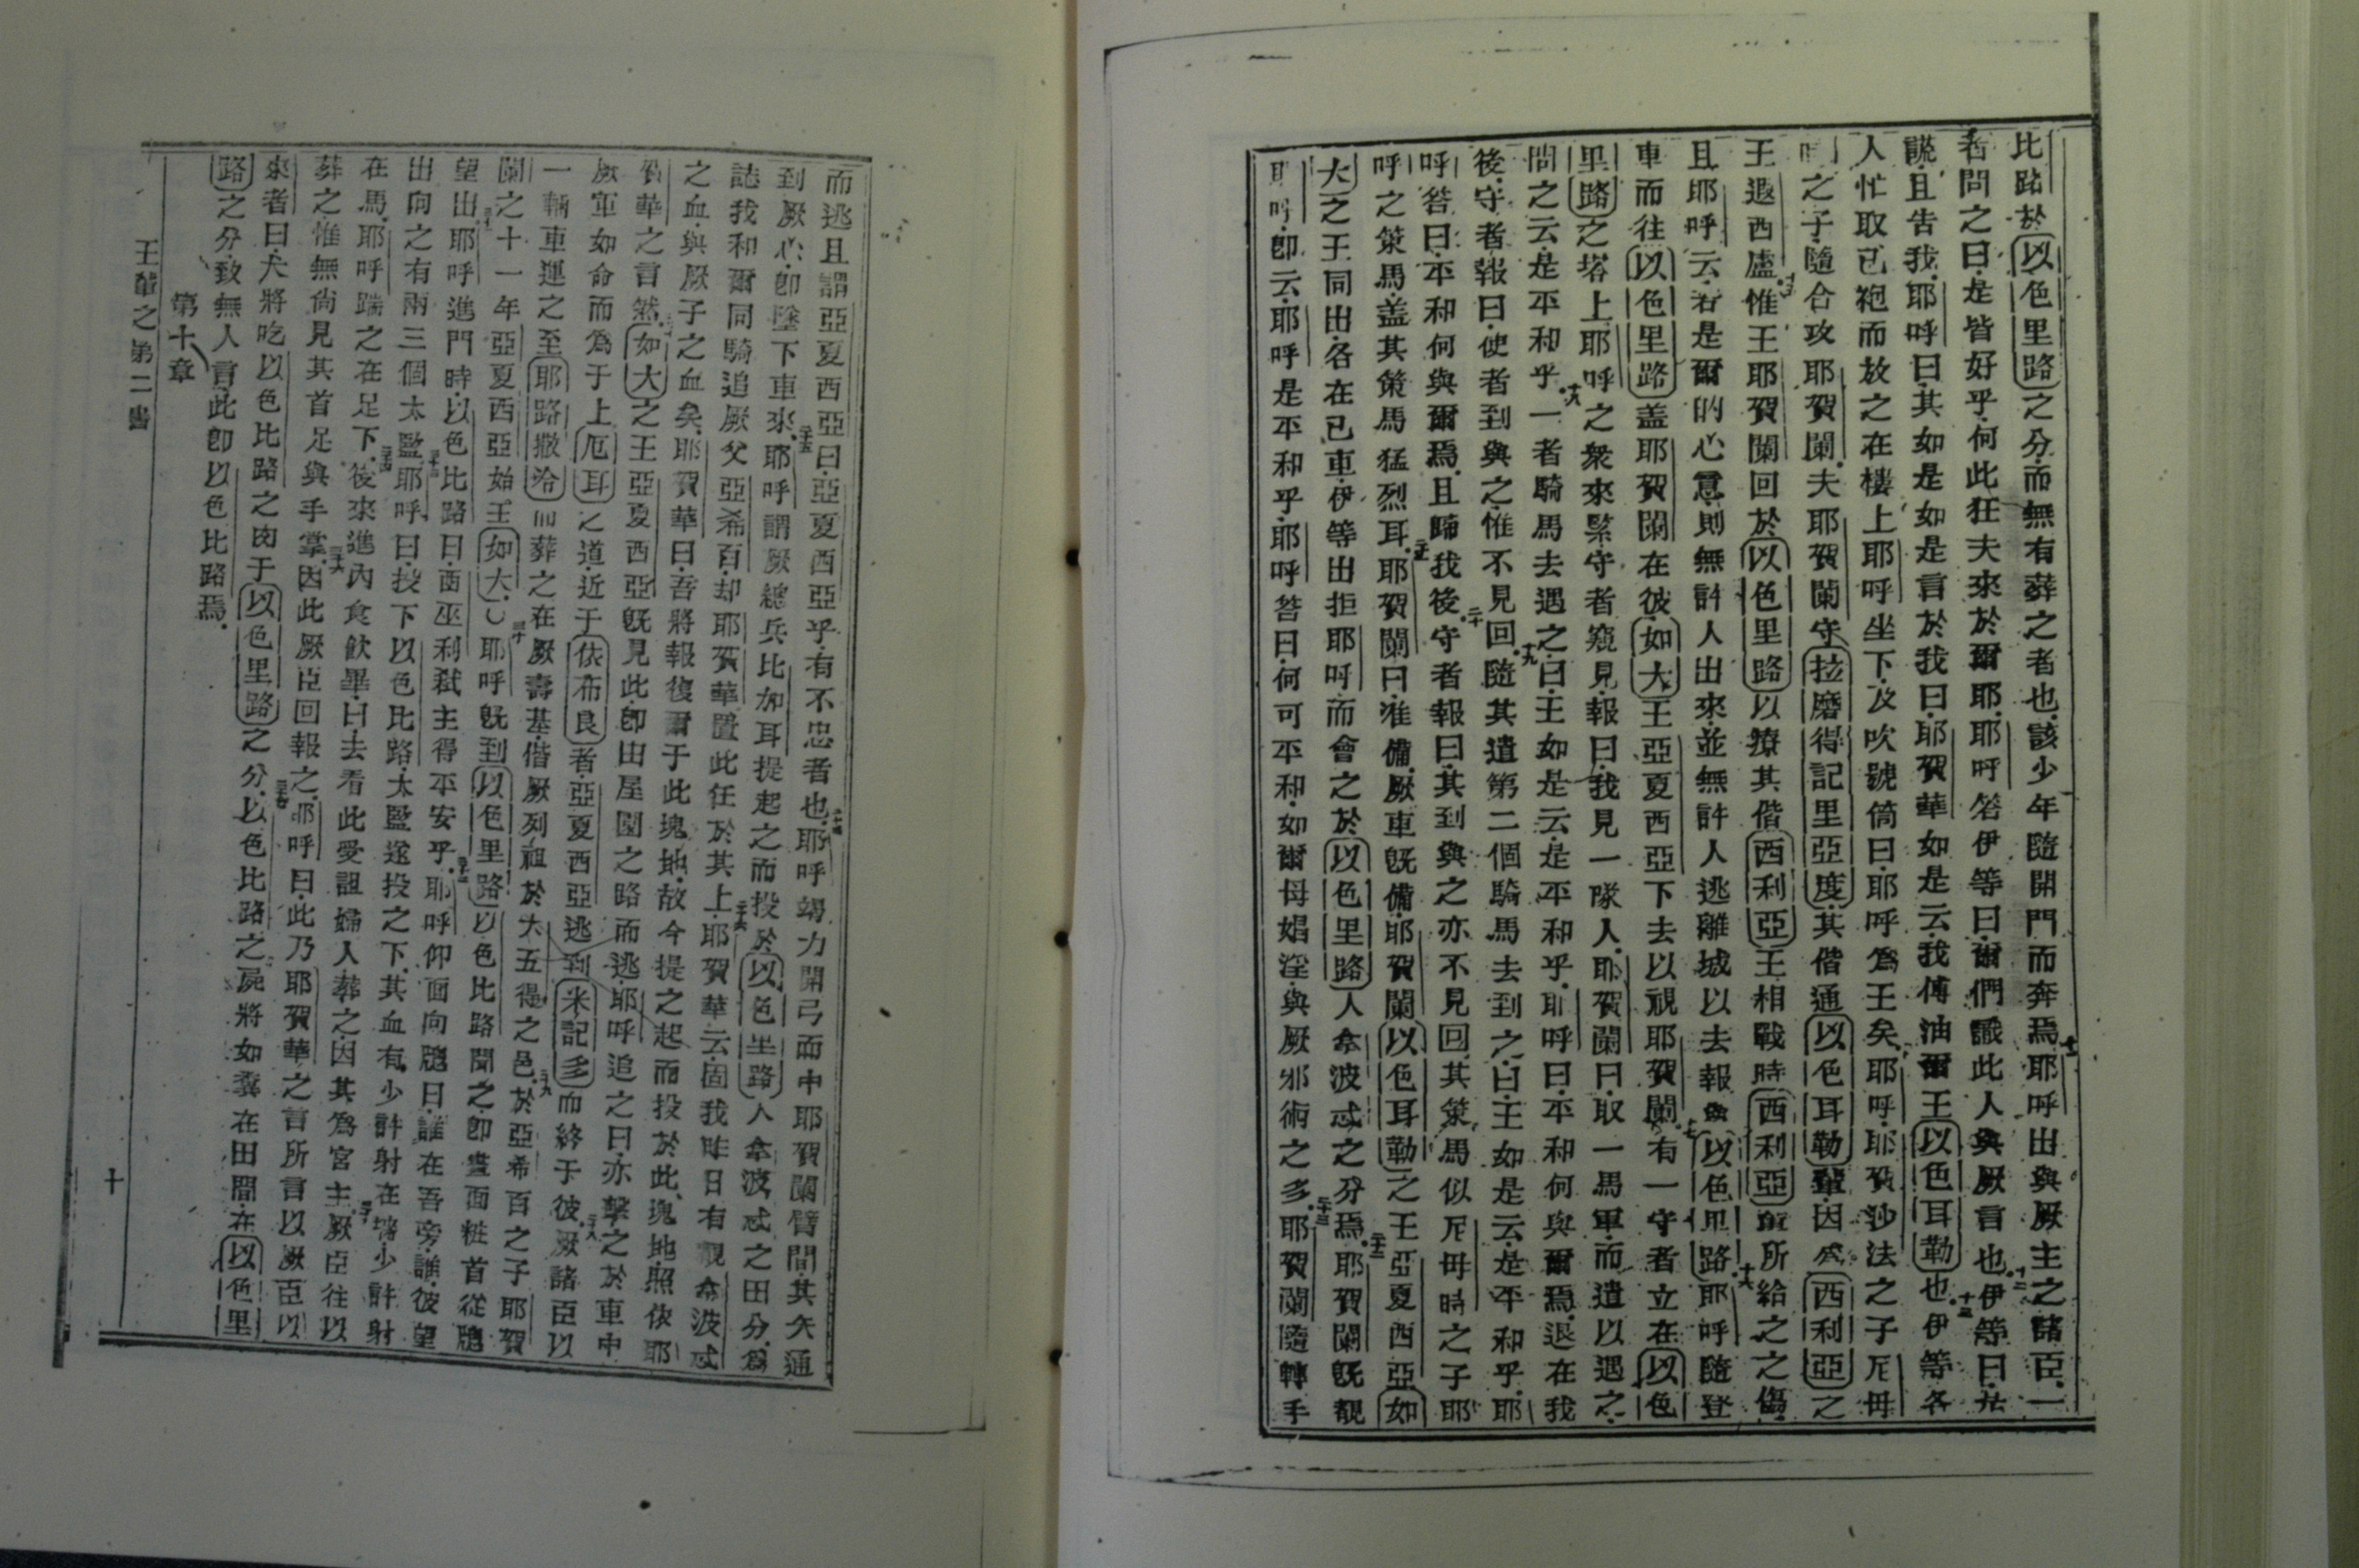 比路於以色里路之分而無有葬之者也該少年隨開門而奔焉十一耶呼出與厥主之諸臣一
者問之曰是皆好乎何此狂夫來於爾耶耶呼答伊等曰爾們識此人與厥言也十二伊等曰
謊且告我耶呼曰其如是如是言於我曰耶賀華如是云我傅油爾王以色耳勒也十三伊等各
人忙取己袍而放之在樓上耶呼坐下及吹號筒曰耶呼為王矣耶呼耶賀沙法之子尼毋
之子隨合攻耶賀蘭夫耶賀蘭守拉磨得記里亞度其偕通以色耳勒輩因為西利亞之
王退西盧惟王耶賀蘭回於以色里路以療其偕西利亞王相戰時西利亞輩所給之之傷
且耶呼云若是爾的心意則無許人出來並無許人逃離城以去報與以色里路十六耶呼隨登
車而往以色里路盖耶賀蘭在彼如大王亞夏西亞下去以視耶賀蘭十七有一守者立在以色
里路之塔上耶呼之衆來緊守者窺見報曰我見一隊人耶賀蘭曰取一馬軍而遣以遇之
問之云是平和乎十八一者騎馬去遇之曰王如是云是平和乎耶呼曰平和何與爾焉退在我
後守者報曰使者到與之惟不見回十九隨其遣第二個騎馬去到之曰王如是云是平和乎耶
呼答曰平和何與爾焉且歸我後二十守者報曰其到與之亦不見回其策馬似尼毋時之子耶
呼之策馬盖其策馬猛烈耳二十一耶賀蘭曰准備厥車既備耶賀蘭以色耳勒之王亞夏西亞如
大之王同出各在己車伊等出拒耶呼而會之於以色里路人拿波忒之分焉二十二耶賀蘭既覩
耶呼即云耶呼是平和乎耶呼答曰何可平和如爾母娼淫與厥邪術之多二十三耶賀蘭隨轉手
而逃且謂亞夏西亞曰亞夏西亞乎有不忠者也二十四耶呼竭力開弓而中耶賀蘭臂間其矢通
到厥心即墜下車來二十五耶呼謂厥總兵比加耳提起之而投於以色里路人拿波忒之田分為
誌我和爾同騎追厥父亞希百却耶賀華置此任於其上二十六耶賀華云固我昨日有覩拿波忒
之血與厥子之血矣耶賀華曰吾將報復爾于此塊地故今提之起而投於此塊地照依耶
賀華之言然二十七如大之王亞夏西亞既見此即由屋園之路而逃耶呼追之曰亦擊之於車中
厥軍如命而為于上厄耳之道近于依布良者亞夏西亞逃到米記多而終于彼二十八厥諸臣以
一輛車運之至耶路撒冷而葬之在厥壽基偕厥列祖於大五得之邑二十九於亞希百之子耶賀
蘭之十一年亞夏西亞始王如大三十耶呼既到以色里路以色比路聞之即畫面粧首從牕
望出三十一耶呼進門時以色比路曰西巫利弒主得平安乎三十二耶呼仰面向牕曰誰在吾旁誰彼望
出向之有兩三個太監三十三耶呼曰投下以色比路太監遂投之下其血有少許射在墻少許射
在馬耶呼踹之在足下三十四後來進內食飲畢曰去看此愛詛婦人葬之因其為宮主三十五厥臣往以
葬之惟無尚見其首足與手掌三十六因此厥臣回報之耶呼曰此乃耶賀華之言所言以厥臣以
來者曰犬將吃以色比路之肉于以色里路之分三十七以色比路之屍將如糞在田間在以色里
路之分致無人言此即以色比路焉
第十章
王輩之第二書
十